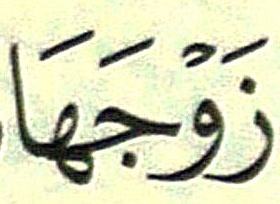 زَوْجَهَا